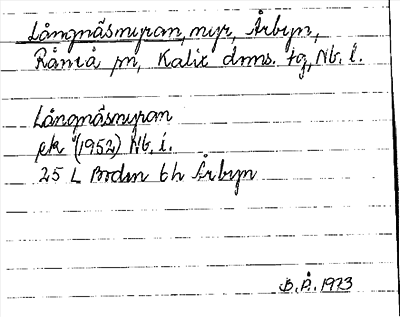 Långnäsmyran, myr, Årbyn,
Råneå sn, Kalix dms. tg, Nb. l.
Långnäsmyran
ek (1952) Nb. l.
25 L Boden 6h Årbyn
B. P. 1973